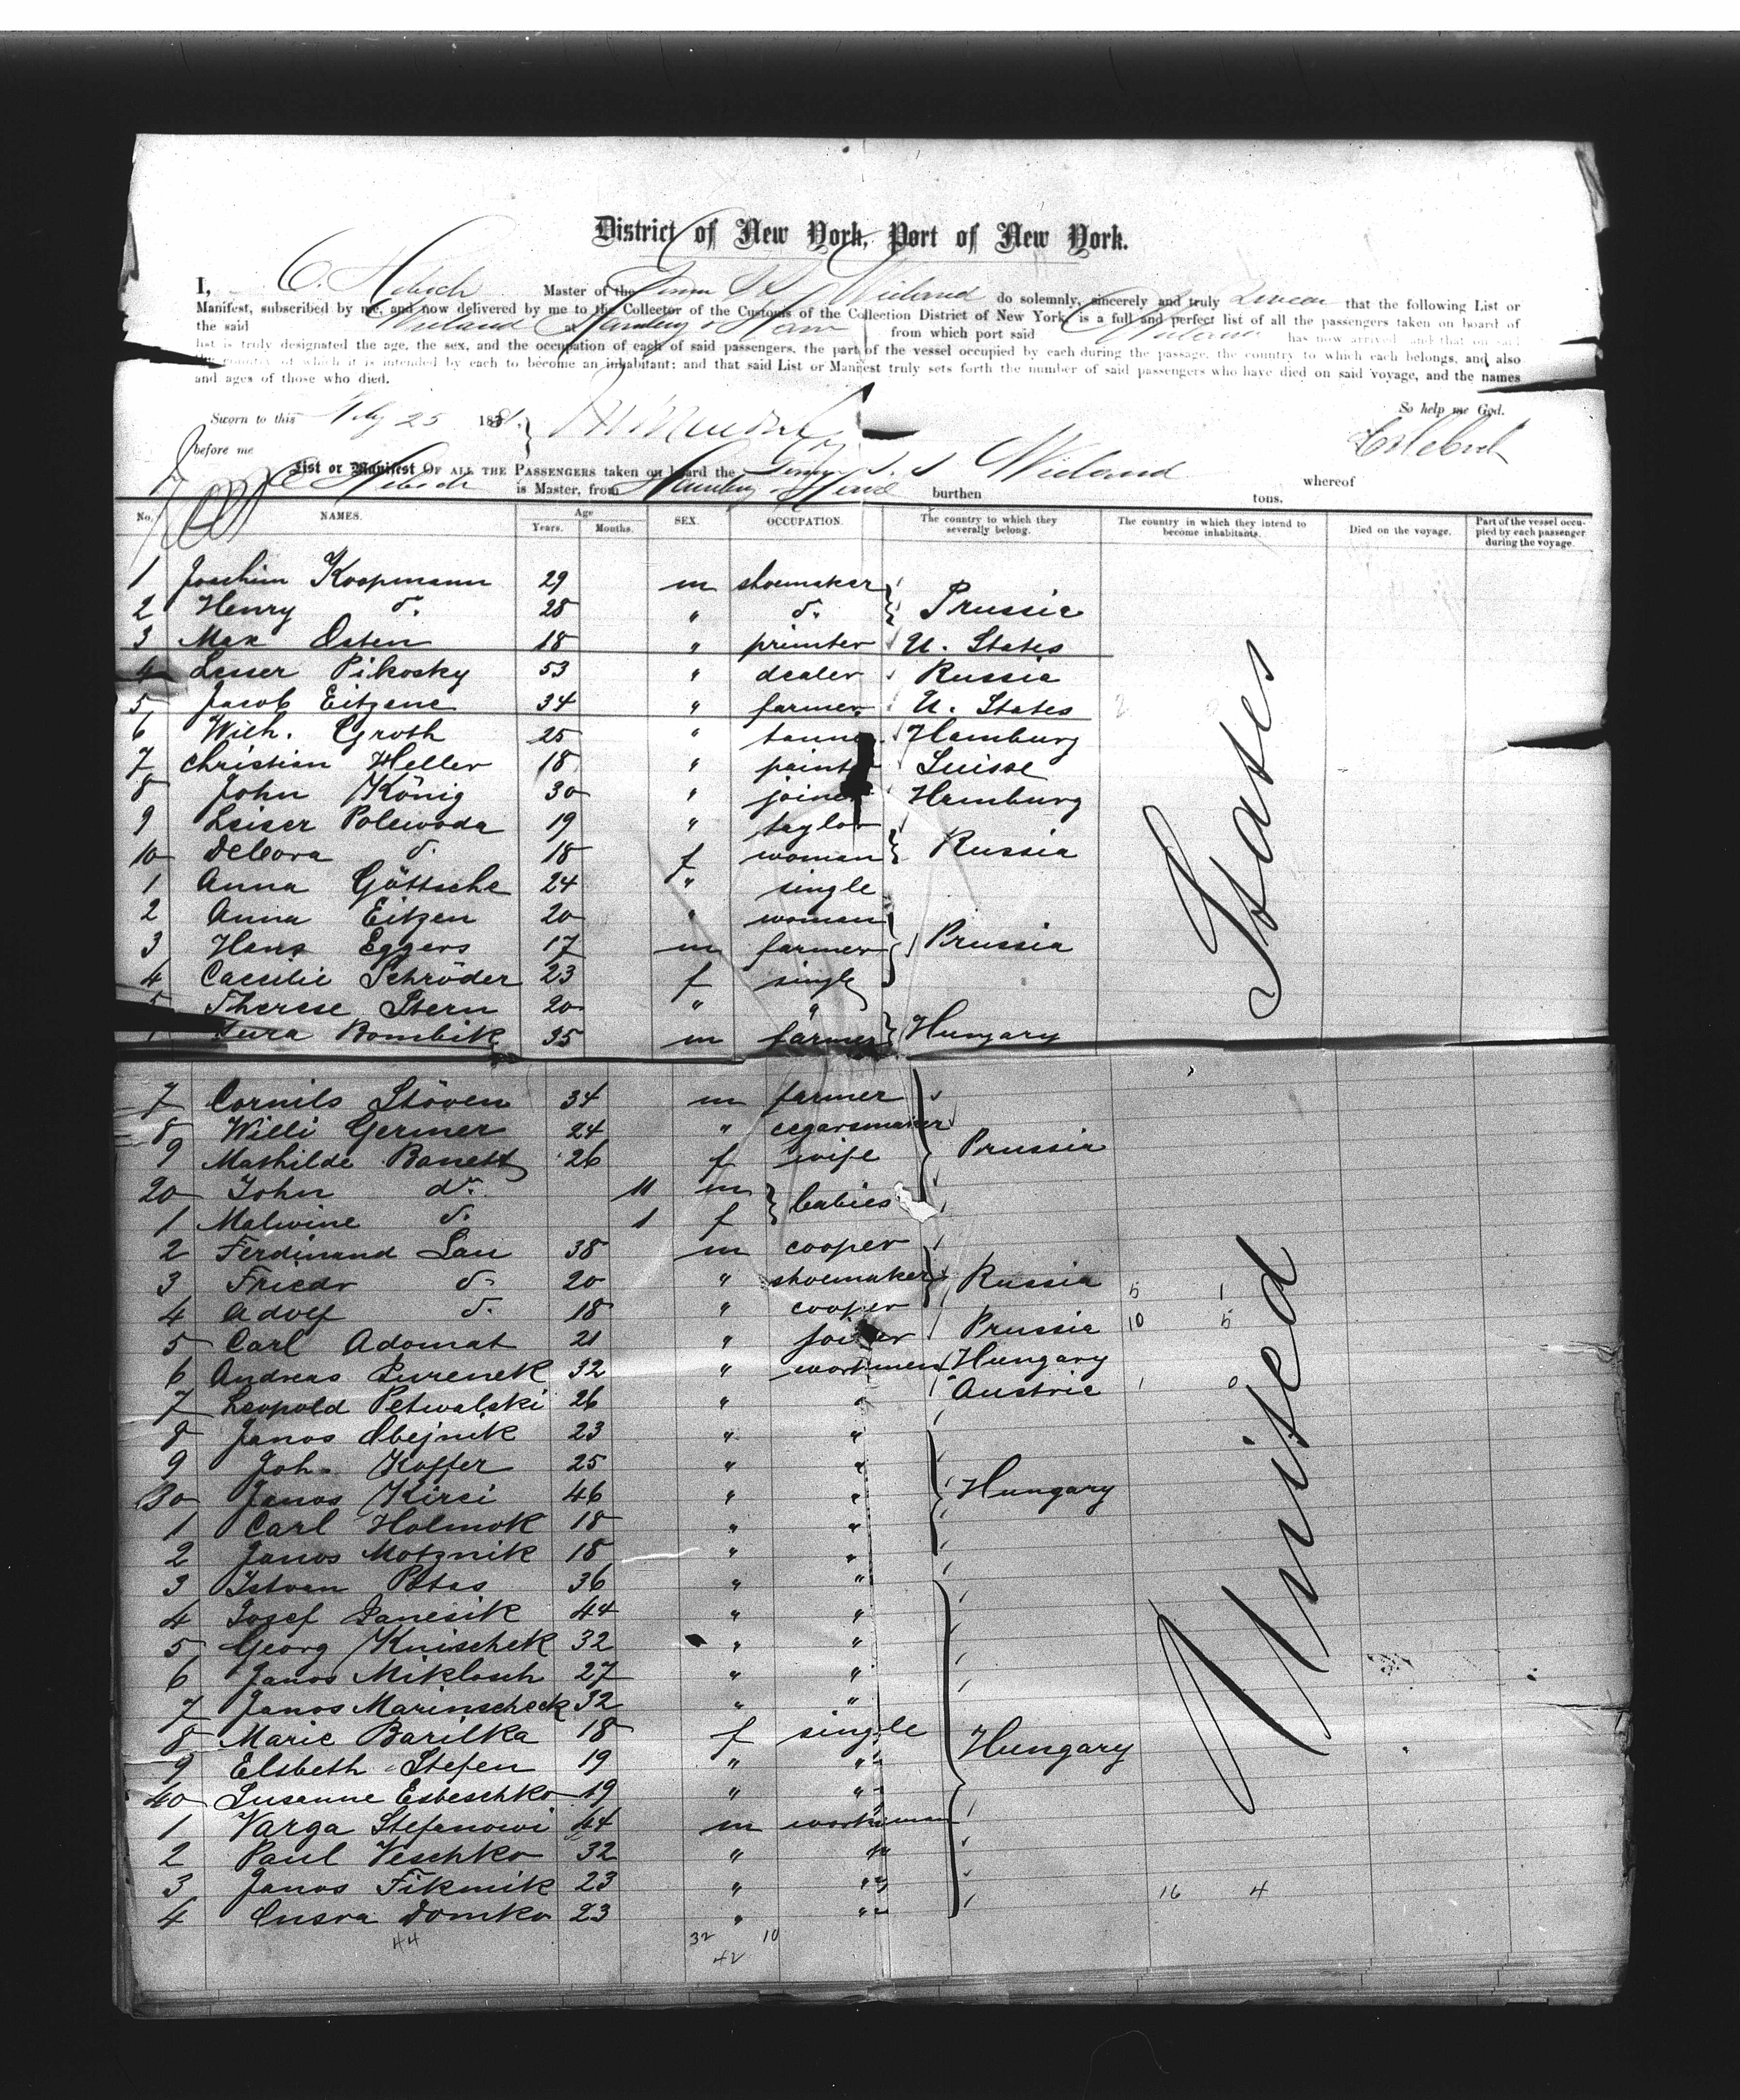 District of New York, Port of New York.
I, C. Hebich Master of the Germ S. S. Wieland do solemnly, sincerely and truly Swear that the following List or
Manifest, subscribed by me, and now delivered by me to the Collector of the Customs of the Collection District of New York, is a full and perfect list of all the passengers taken on board of
the said Wieland at Hamburg & Havre from which port said Wieland has now arrived and that on said
list is truly designated the age, the sex, and the occupation of each of said passengers, the part of the vessel occupied by each during the passage, the country to which each belongs, and also
the country of which it is intended by each to become an inhabitant; and that said List or Manifest truly sets forth the number of said passengers who have died on said voyage, and the names
and ages of those who died.
So help me God.
Sworn to this 25 1881.
before me
List or Manifest OF ALL THE PASSENGERS taken on board the Germ S. S Wieland whereof
C Hebich is Master, from Hamburg & Havre burthen tons.
No. NAMES. Age Years. Months. SEX. OCCUPATION. The country to which they severally belong. The country in which they intend to become inhabitants. Died on the voyage. Part of the vessel occupied by each passenger during the voyage.
1 Joachim Koopmann 29 m shoemaker
2 Henry d. 28 " d. Prussia
3 Max Osten 18 " printer U. States
4 Lesser Pikosky 53 " dealer Russia
5 Jacob Eitzene 34 " farmer U. States
6 Wilh. Groth 25 " tanner Hamburg
7 Christian Heller 18 " painter Suisse
8 John König 30 " joiner Hamburg
9 Leiser Polewoda 19 " taylor
10 Debora d. 18 f woman Russia
1 Anna Göttsche 24 " single
2 Anna Eitzen 20 " woman
3 Hans Eggers 17 m farmer Prussia
4 Caecilie Schröder 23 f single
5 Therese Stern 20 " "
Jura Bombik 35 m farmer Hungary
7 Cornils Stöven 34 m farmer
8 Willi Germer 24 " cegarsmaker
9 Mathilde Banett 26 f wife Prussia
20 John do. 11 m babies
1 Malwine d. 1 f
2 Ferdinand Lau 38 m cooper
3 Friedr d. 20 " shoemaker Russia 5 1
4 Adolf d. 18 " cooper
5 Carl Adomat 21 " joiner Prussia 10 5
6 Andreas Surenek 32 " workmen Hungary
7 Leopold Petwalski 26 " " Austria 1 0
8 Janos Obejnik 23 " "
9 Joh. Koffer 25 " "
30 Janos Kirsi 46 " " Hungary
1 Carl Holmok 18 " "
2 Janos Motznik 18 " "
3 Istvan Potas 36 " "
4 Josef Janesik 44 " "
5 Georg Knischek 32 " "
6 Janos Miklosch 27 " "
7 Janos Marinscheck 32 " "
8 Marie Barilka 18 f single Hungary
9 Elsbeth Stefen 19 " "
40 Susanne Esbeschko 19 " "
1 Varga Stefanowi 44 m workman
2 Paul Veschko 32 " "
3 Janos Fikmik 23 " " 16 4
4 Cusra Domko 23 " "
44 32 10
42
United States